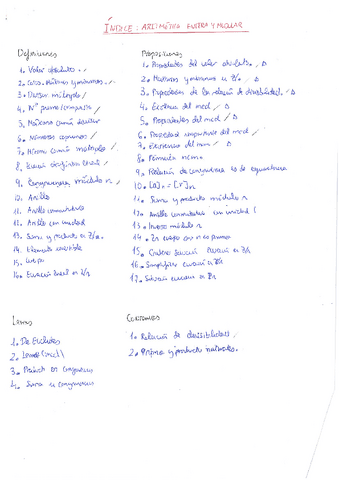 ÍNDICE: ARITMÉTICA ENTERA Y MODULAR
Definiciones
1. Valor absoluto
2. Cotas, máximos y mínimos
3. Divisor múltiplo
4. Nº primo/compuesto
5. Máximo común divisor
6. Números coprimos
7. Mínimo común múltiplo
8. Ecuación diofántica
9. Congruencia módulo n
10. Anillo
11. Anillo conmutativo
12. Anillo con unidad
13. Suma y producto en Z/n
14. Elemento inversible
15. Cuerpo
16. Ecuación lineal en Z/n
Proposiciones
1. Propiedades del valor absoluto
2. Máximos y mínimos en Z
3. Propiedades de la relación de divisibilidad
4. Existencia del mcd
5. Propiedades del mcd
6. Propiedad
del mcd
7. Existencia del mcm
8.
mcm
9. Relación de congruencia es de equivalencia
10. [a]n = [r]n
11. Suma y producto módulo n
12. Anillo conmutativo con unidad
13. Inverso módulo n
14. Zn cuerpo
n primo
15.
ecuación en Zn
16. Simplificar ecuación en Zn
17. Solución ecuación en Zn
Lemas
1. De Euclides
2. Lema (mcd)
3. Producto en congruencias
4. Suma en congruencias
Corolarios
1. Relación de divisibilidad
2. Primo y producto